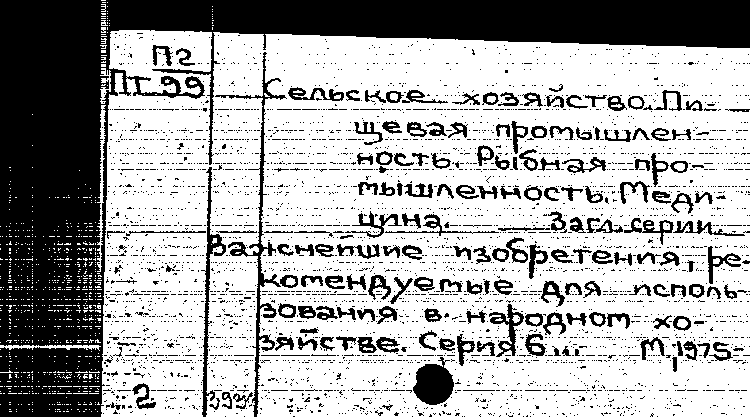 П2
Пт 99
Сельское хозяйство. Пи-
щевая промышлен-
ность. Рыбная про-
мышленность. Меди-
цина. Загл. серии.
Важнейшие изобретения, ре-
комендуемые для исполь-
зования в народном хо-
зяйстве. Серия 6... М, 1975-
2